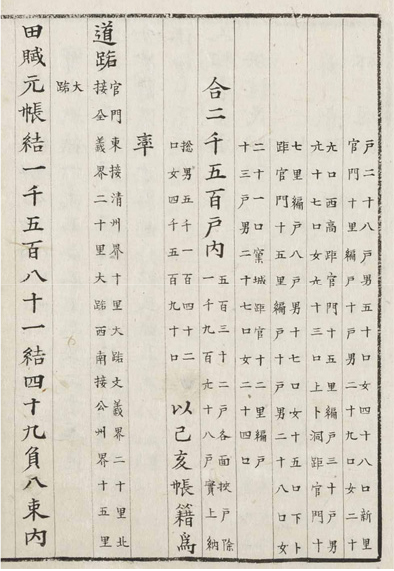 戶二十八戶男五十口女四十八口新里
官門十里編戶十戶男二十九口女二十
九口西高距官門十五里編戶三十戶男
六十七口女六十三口上卜洞距官門十
七里編戶八戶男十七口女十五口下卜
距官門十五里編戶十戶男二十八口女
二十一口窯城距官十二里編戶
十三戶男二十七口女二十四口
合二千五百戶內
五百三十二戶各面挾戶除
一千九百六十八戶實上納
摠男五千一百四十二
口女四千五百九十口
以己亥帳籍爲
率
道路
官門東接清州界十里大路文義界二十里北
接全義界二十里大路西南接公州界十五里
大
路
田賦元帳結一千五百八十一結四十九負八束內